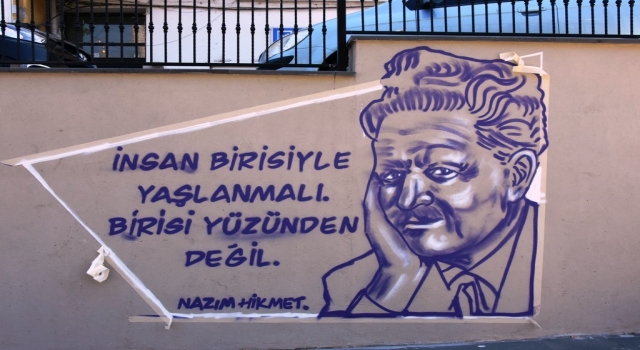 İNSAN BİRİSİYLE
YAŞLANMALI.
BİRİSİ YÜZÜNDEN
DEĞİL.
NAZIM HİKMET.